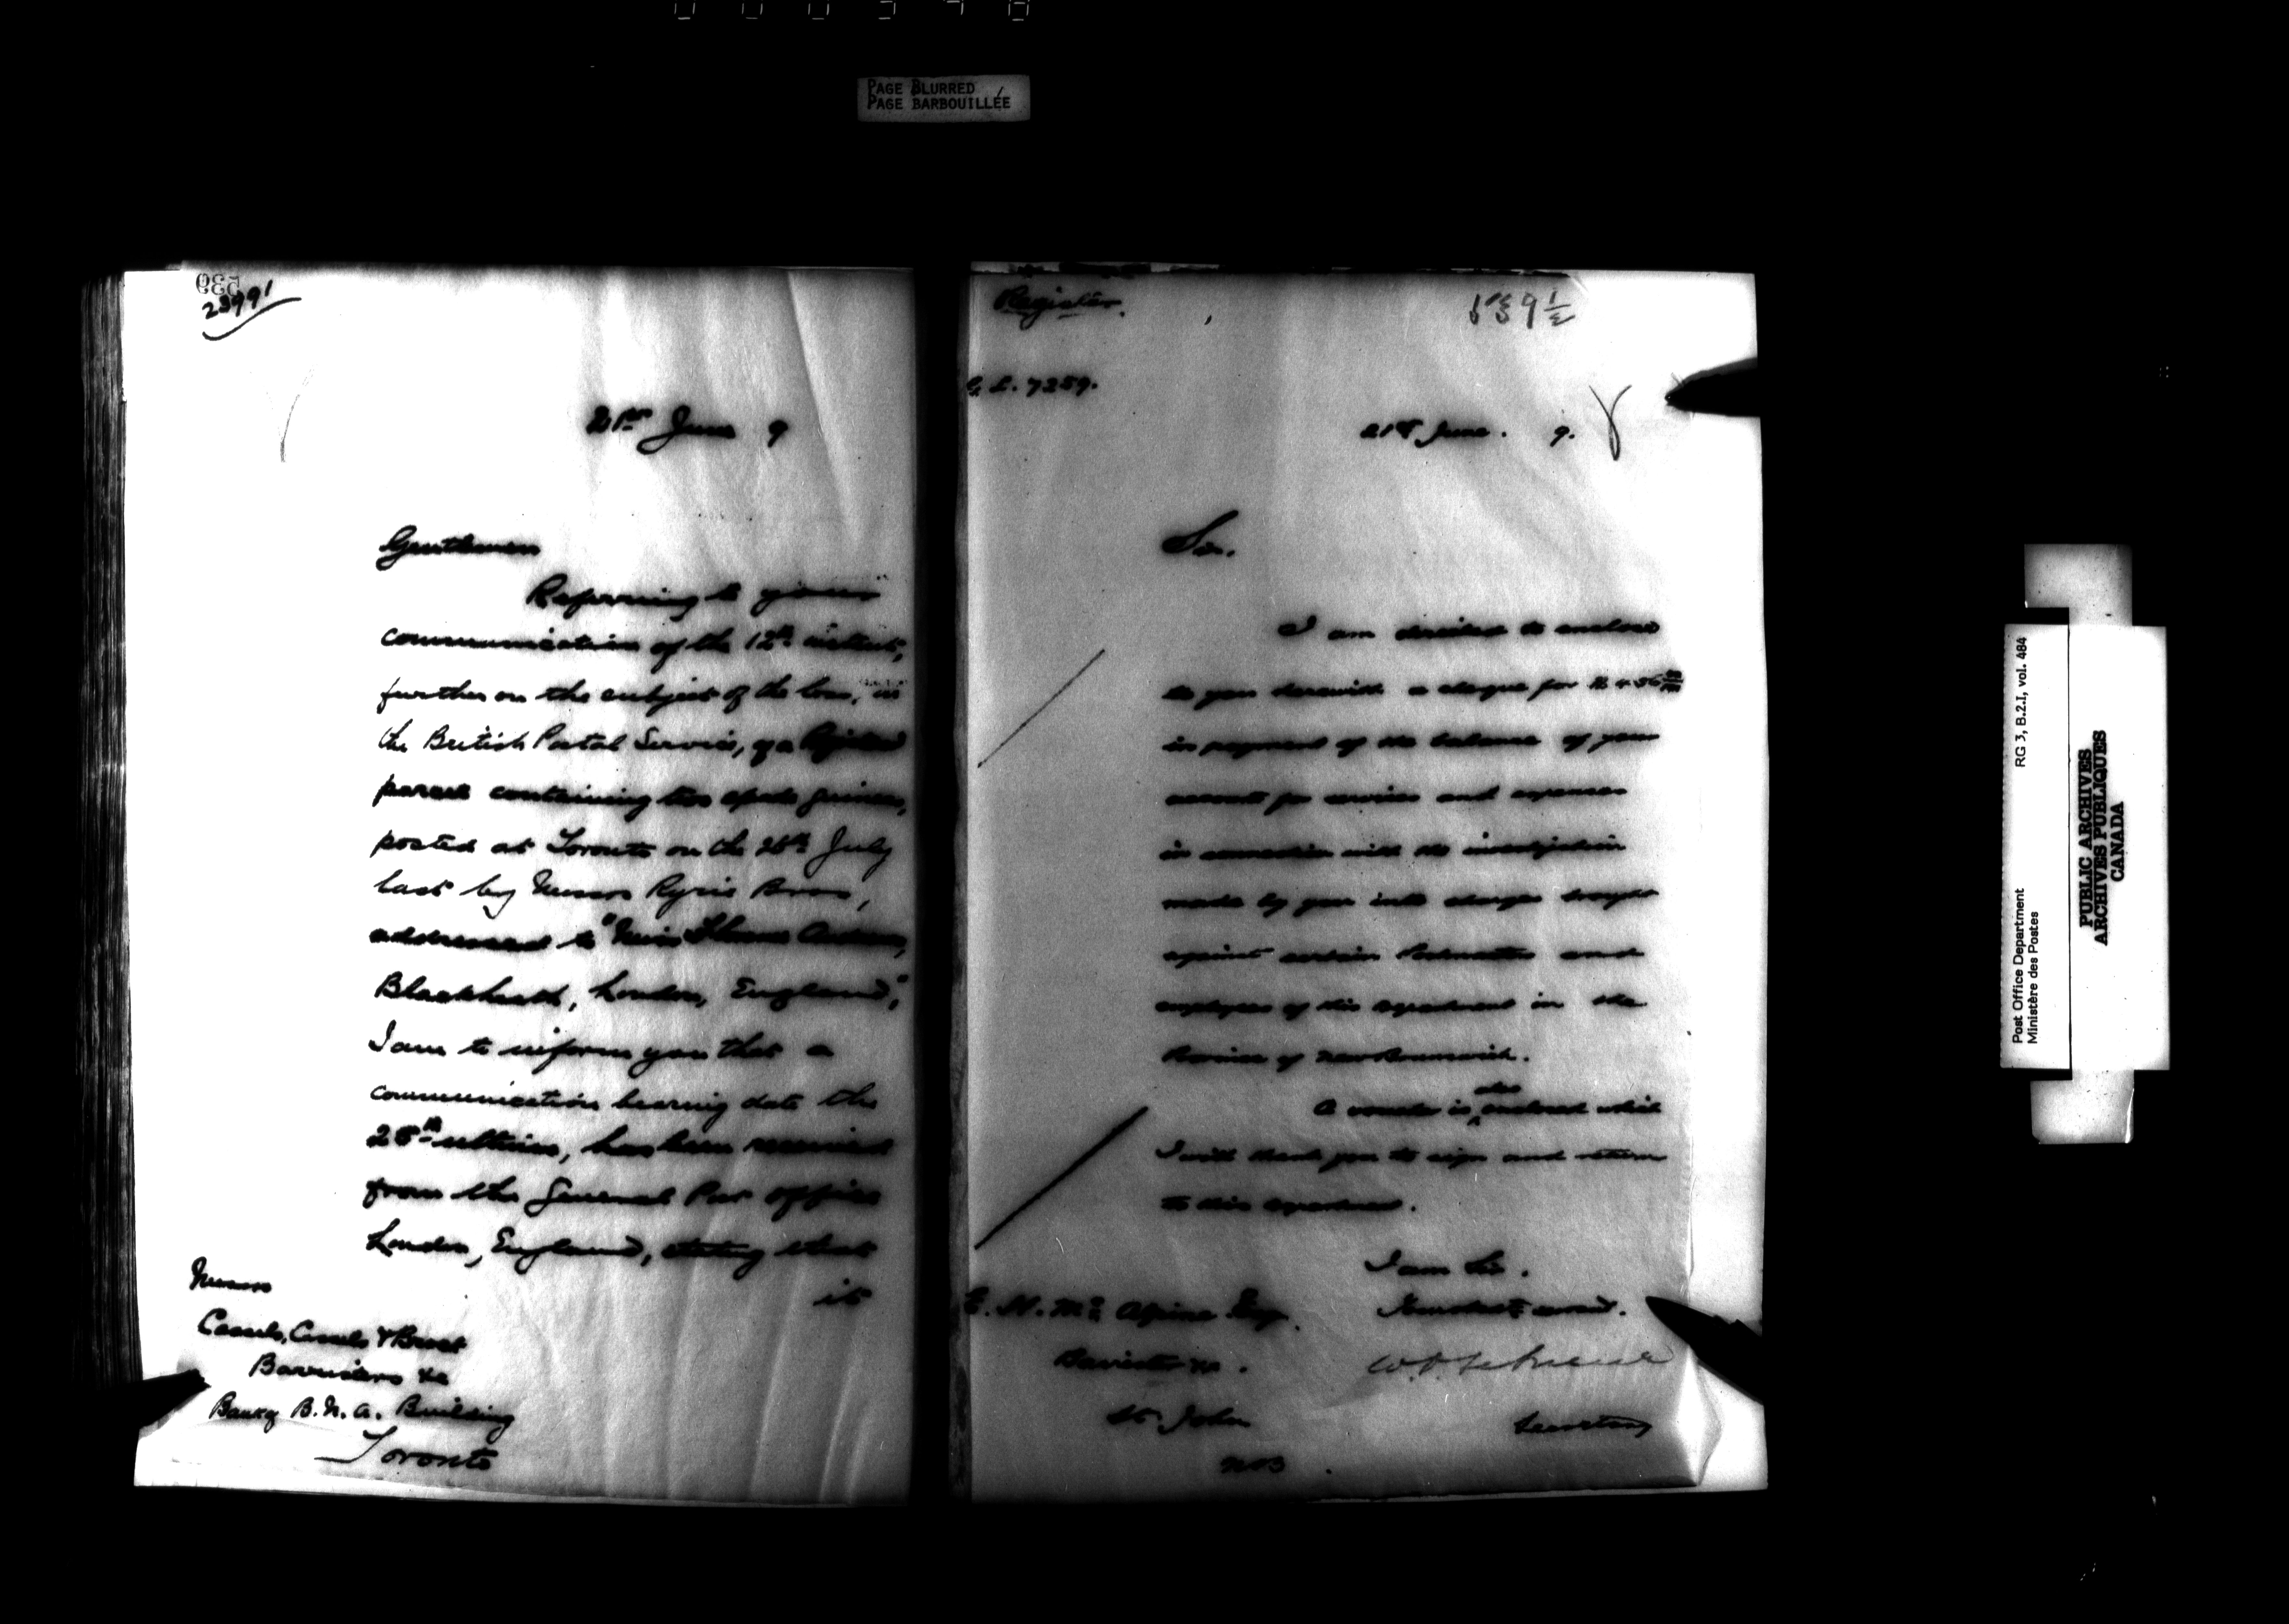 PAGE BLURRED
PAGE BARBOUILLÉE
539
23991
21st June 9
Gentlemen
Referring to your
communication of the 12th instant,
further on the subject of the loss, in
the British Postal Service, of a Registered
parcel containing two
posted at Toronto on the 25th July
last by Messrs Ryrie Bros,
addressed to "Miss
Blackheath, London, England",
I am to inform you that a
communication bearing date the
28th ultimo, has been received
from the General Post Office
London, England, stating that
it
Messrs
Cassels, Cassels & Brock
Barristers &c
Bank of B.N.A. Building
Toronto
Register.
539½
G.L. 7259.
21st June. 9.
Sir.
I am directed to enclose
to you herewith a cheque for
in payment of the balance of your
account for services and expenses
in connection with the investigation
made by you into charges brought
against certain Postmasters and
employees of this department in the
Province of New Brunswick.
A voucher is also enclosed which
I will thank you to sign and return
to this department.
I am Sir.
Your obedt servant.
E. N. Mc Alpine Esq.
Barrister &c.
St John
NB.
Secretary
Post Office Department RG 3, B.2.I, vol. 484
Ministère des Postes
PUBLIC ARCHIVES
ARCHIVES PUBLIQUES
CANADA